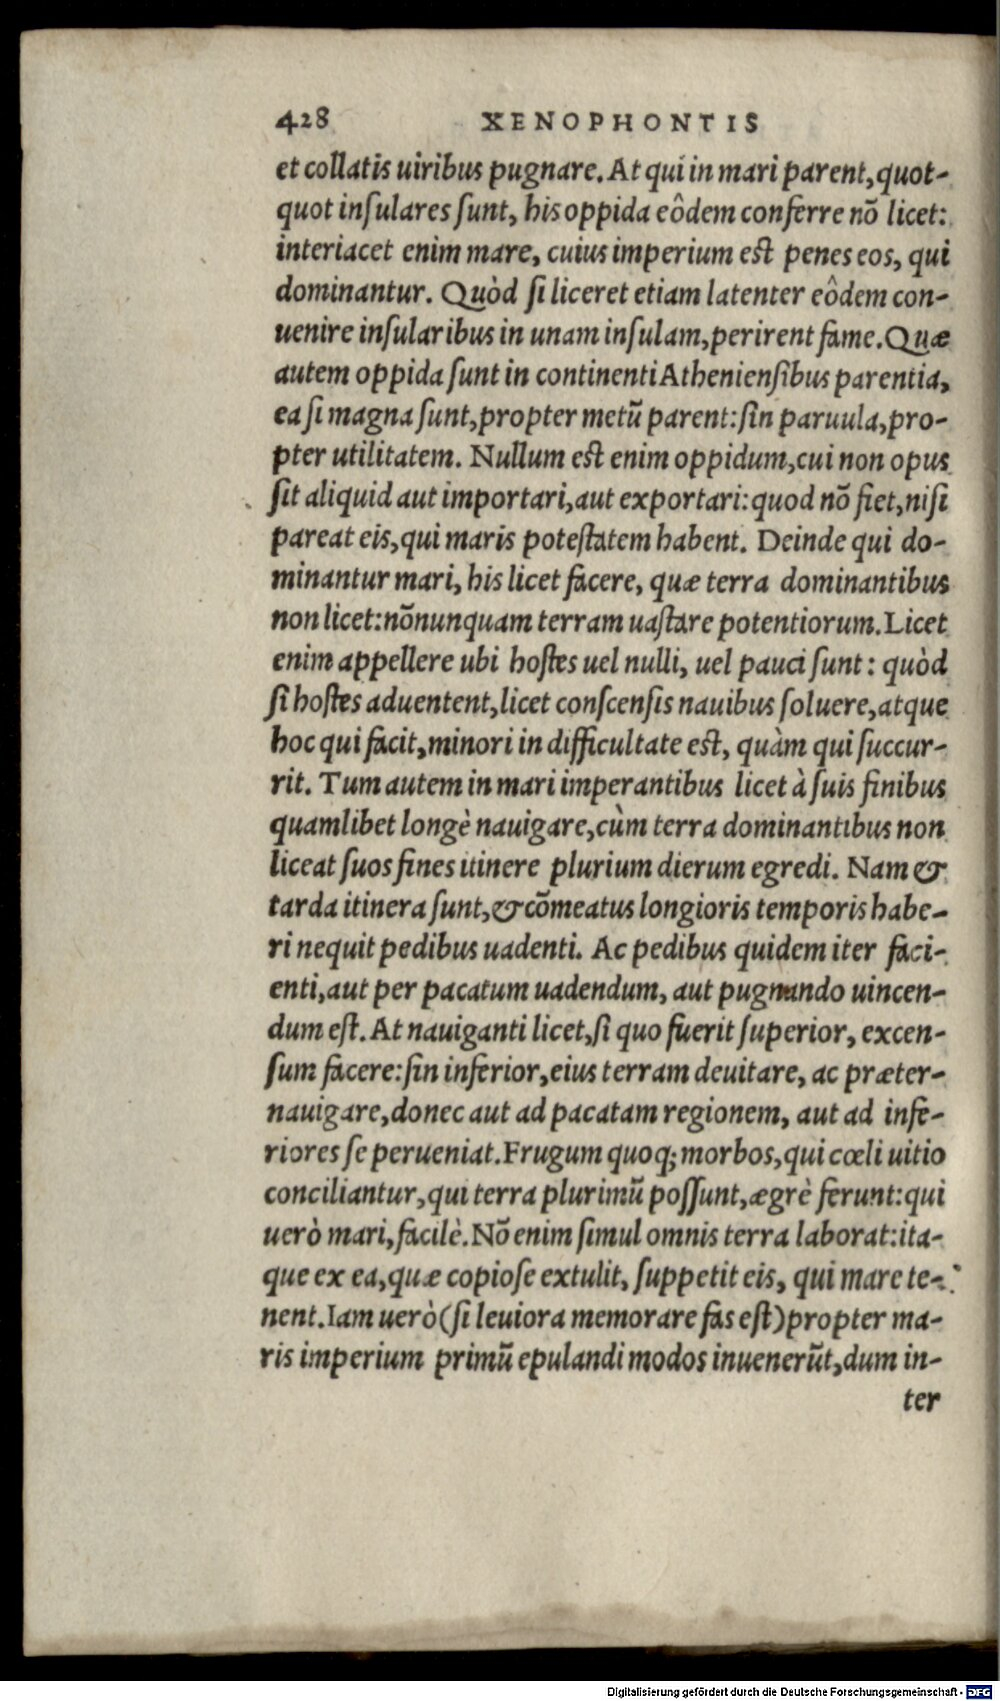 428 XENOPHONTIS
et collatis uiribus pugnare. At qui in mari parent, quot-
quot inſulares ſunt, his oppida eôdem conferre nō licet:
interiacet enim mare, cuius imperium est penes eos, qui
dominantur. Quòd ſi liceret etiam latenter eôdem con-
uenire inſularibus in unam inſulam, perirent fame. Quæ
autem oppida ſunt in continenti Athenienſibus parentia,
ea ſi magna ſunt, propter metū parent: ſin paruula, pro-
pter utilitatem. Nullum est enim oppidum, cui non opus
ſit aliquid aut importari, aut exportari: quod nō fiet, niſi
pareat eis, qui maris poteſtatem habent. Deinde qui do-
minantur mari, his licet facere, quæ terra dominantibus
non licet: nōnunquam terram uaſtare potentiorum. Licet
enim appellere ubi hoſtes uel nulli, uel pauci ſunt: quòd
ſi hoſtes aduentent, licet conſcenſis nauibus ſoluere, atque
hoc qui facit, minori in difficultate eſt, quàm qui ſuccur-
rit. Tum autem in mari imperantibus licet à ſuis finibus
quamlibet longè nauigare, cùm terra dominantibus non
liceat ſuos fines itinere plurium dierum egredi. Nam &
tarda itinera ſunt, & cōmeatus longioris temporis habe-
ri nequit pedibus uadenti. Ac pedibus quidem iter faci-
enti, aut per pacatum uadendum, aut pugnando uincen-
dum eſt. At nauiganti licet, ſi quo fuerit ſuperior, excen-
ſum facere: ſin inferior, eius terram deuitare, ac præter-
nauigare, donec aut ad pacatam regionem, aut ad infe-
riores ſe perueniat. Frugum quoq; morbos, qui cœli uitio
conciliantur, qui terra plurimū poſſunt, ægrè ferunt: qui
uerò mari, facilè. Nō enim ſimul omnis terra laborat: ita-
que ex ea, quæ copioſe extulit, ſuppetit eis, qui mare te-
nent. Iam uerò (ſi leuiora memorare fas eſt) propter ma-
ris imperium primū epulandi modos inuenerūt, dum in-
ter
Digitalisierung gefördert durch die Deutsche Forschungsgemeinschaft - DFG